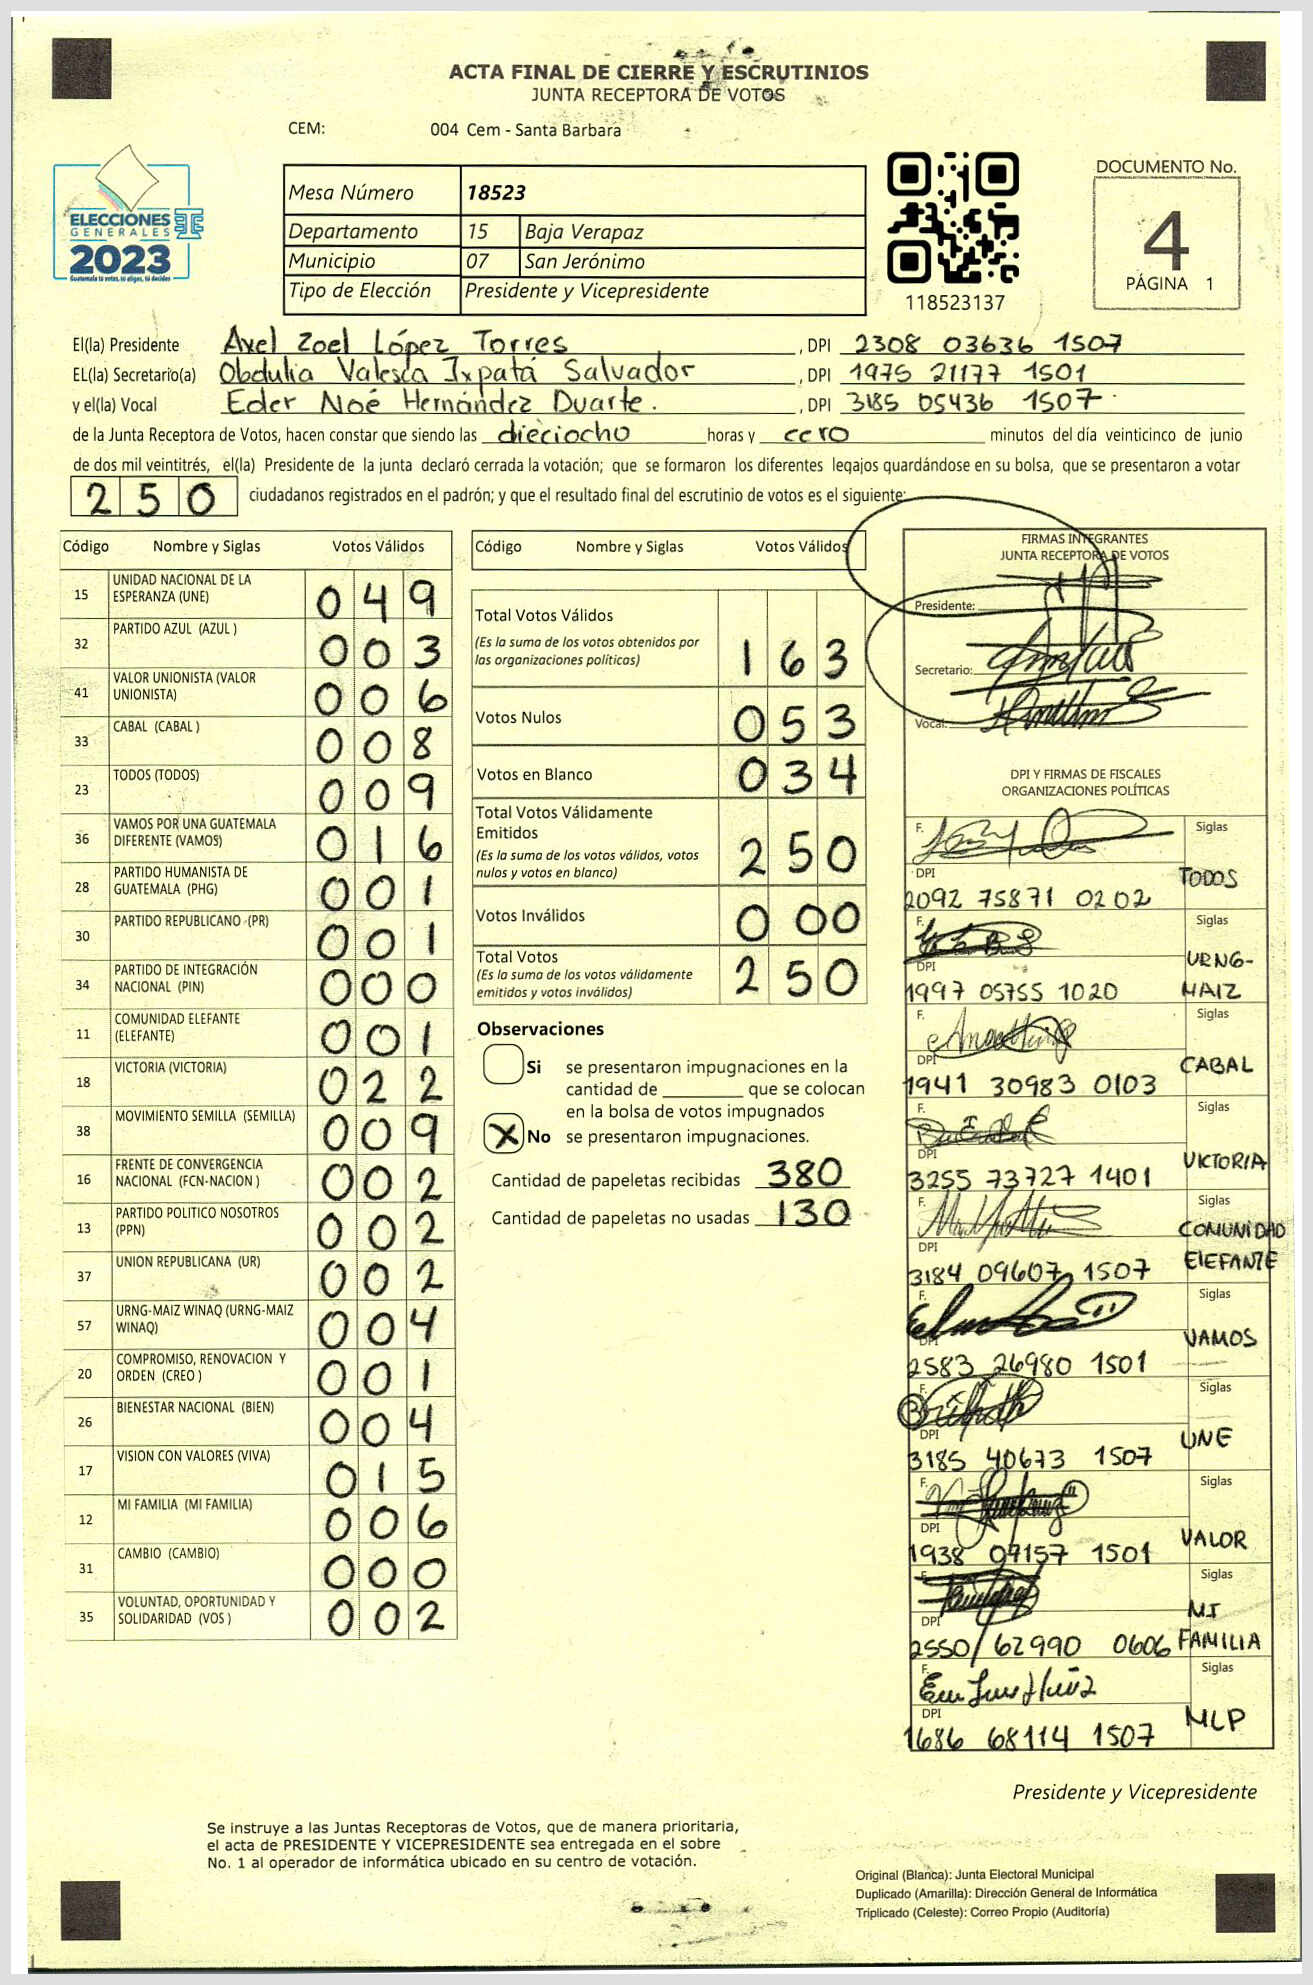 ACTA FINAL DE CIERRE Y ESCRUTINIOS
JUNTA RECEPTORA DE VOTOS
CEM: 004 Cem - Santa Barbara
ELECCIONES
GENERALES
2023
Guatemala tú votas, tú eliges, tú decides
Mesa Número 18523
Departamento 15 Baja Verapaz
Municipio 07 San Jerónimo
Tipo de Elección Presidente y Vicepresidente
118523137
DOCUMENTO No.
4
PÁGINA 1
El(la) Presidente Axel Zoel López Torres, DPI 2308 03636 1507
EL(la) Secretario(a) Obdulia Valesca Ixpatá Salvador, DPI 1975 21177 1501
y el(la) Vocal Eder Noé Hernández Duarte., DPI 3185 05436 1507
de la Junta Receptora de Votos, hacen constar que siendo las dieciocho horas y cero minutos del día veinticinco de junio
de dos mil veintitrés, el(la) Presidente de la junta declaró cerrada la votación; que se formaron los diferentes legajos guardándose en su bolsa, que se presentaron a votar
250 ciudadanos registrados en el padrón; y que el resultado final del escrutinio de votos es el siguiente:
Código Nombre y Siglas Votos Válidos
15 UNIDAD NACIONAL DE LA ESPERANZA (UNE) 049
32 PARTIDO AZUL (AZUL ) 003
41 VALOR UNIONISTA (VALOR UNIONISTA) 006
33 CABAL (CABAL ) 008
23 TODOS (TODOS) 009
36 VAMOS POR UNA GUATEMALA DIFERENTE (VAMOS) 016
28 PARTIDO HUMANISTA DE GUATEMALA (PHG) 001
30 PARTIDO REPUBLICANO (PR) 001
34 PARTIDO DE INTEGRACIÓN NACIONAL (PIN) 000
11 COMUNIDAD ELEFANTE (ELEFANTE) 001
18 VICTORIA (VICTORIA) 022
38 MOVIMIENTO SEMILLA (SEMILLA) 009
16 FRENTE DE CONVERGENCIA NACIONAL (FCN-NACION ) 002
13 PARTIDO POLITICO NOSOTROS (PPN) 002
37 UNION REPUBLICANA (UR) 002
57 URNG-MAIZ WINAQ (URNG-MAIZ WINAQ) 004
20 COMPROMISO, RENOVACION Y ORDEN (CREO ) 001
26 BIENESTAR NACIONAL (BIEN) 004
17 VISION CON VALORES (VIVA) 015
12 MI FAMILIA (MI FAMILIA) 006
31 CAMBIO (CAMBIO) 000
35 VOLUNTAD, OPORTUNIDAD Y SOLIDARIDAD (VOS ) 002
Código Nombre y Siglas Votos Válidos
Total Votos Válidos
(Es la suma de los votos obtenidos por las organizaciones políticas) 163
Votos Nulos 053
Votos en Blanco 034
Total Votos Válidamente Emitidos
(Es la suma de los votos válidos, votos nulos y votos en blanco) 250
Votos Inválidos 000
Total Votos
(Es la suma de los votos válidamente emitidos y votos inválidos) 250
Observaciones
Si se presentaron impugnaciones en la
cantidad de ________ que se colocan
en la bolsa de votos impugnados
X No se presentaron impugnaciones.
Cantidad de papeletas recibidas 380
Cantidad de papeletas no usadas 130
FIRMAS INTEGRANTES
JUNTA RECEPTORA DE VOTOS
Presidente:
Secretario:
Vocal:
DPI Y FIRMAS DE FISCALES
ORGANIZACIONES POLÍTICAS
F. Siglas
DPI TODOS
2092 75871 0202
F. Siglas
DPI URNG-
1997 05755 1020 MAIZ
F. Siglas
DPI CABAL
1941 30983 0103
F. Siglas
DPI VICTORIA
3255 73727 1401
F. Siglas
COMUNIDAD
DPI ElEFANTE
3184 09607 1507
F. Siglas
DPI VAMOS
2583 26980 1501
F. Siglas
DPI UNE
3185 40673 1507
F. Siglas
DPI VALOR
1938 07157 1501
F. Siglas
DPI MI
2550 62990 0606 FAMILIA
F. Siglas
DPI MLP
1686 68114 1507
Presidente y Vicepresidente
Se instruye a las Juntas Receptoras de Votos, que de manera prioritaria,
el acta de PRESIDENTE Y VICEPRESIDENTE sea entregada en el sobre
No. 1 al operador de informática ubicado en su centro de votación.
Original (Blanca): Junta Electoral Municipal
Duplicado (Amarilla): Dirección General de Informática
Triplicado (Celeste): Correo Propio (Auditoría)